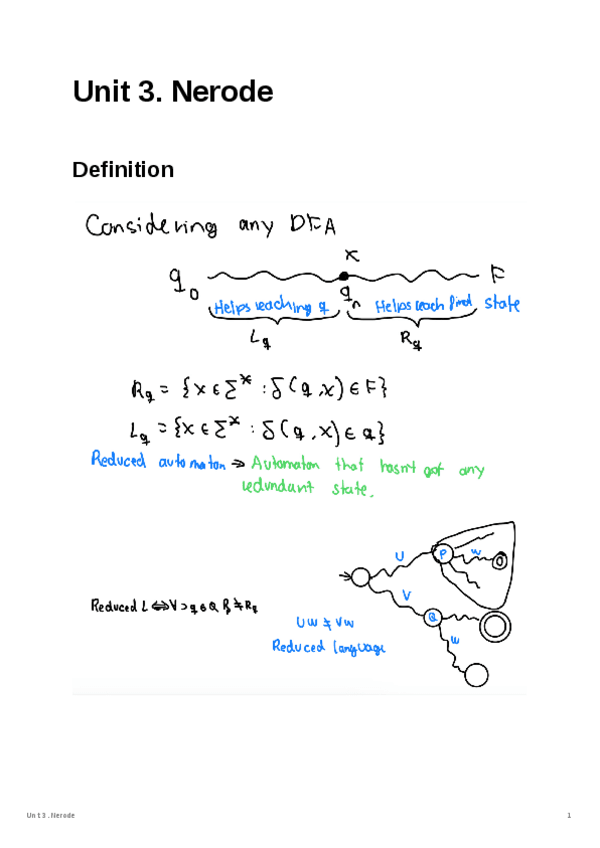 Unit 3. Nerode
Definition
Considering any DFA
x
q0 qn F
Helps reaching q Helps reach final state
Lq Rq
Rq = {x ∈ Σ* : δ(q,x) ∈ F}
Lq = {x ∈ Σ* : δ(q,x) ∈ q}
Reduced automaton ⇒ Automaton that hasn't got any
redundant state.
U P w
V
Reduced L ⇔ ∀ q ∈ Q ≠ Rq
Q
Uw ≠ Vw
w
Reduced language
Unit 3. Nerode 1